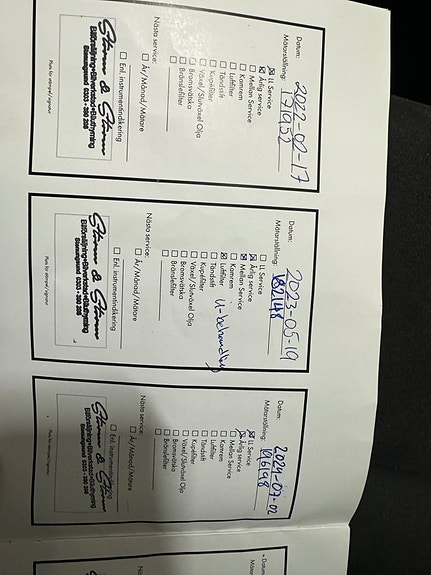 Datum: 2022-02-17
Mätarställning: 171952
☒ LL Service
☒ Årlig service
☐ Mellan Service
☐ Kamrem
☐ Luftfilter
☐ Tändstift
☐ Kupéfilter
☐ Växel/Slutväxel Olja
☐ Bromsvätska
☐ Bränslefilter
☐
Nästa service:
☐ År/Månad/Mätare
☐ Enl. instrumentindikering
Ström & Ström
Billförsäljning•Bilverkstad•Biluthyrning
Stenungsund 0303 - 390 298
Plats för stämpel/signatur
Datum: 2023-05-19
Mätarställning: 182148
☐ LL Service
☒ Årlig service
☒ Mellan Service
☐ Kamrem
☒ Luftfilter U-behandling
☐ Tändstift
☐ Kupéfilter
☐ Växel/Slutväxel Olja
☐ Bromsvätska
☐ Bränslefilter
☐
Nästa service:
☐ År/Månad/Mätare
☐ Enl. instrumentindikering
Ström & Ström
Billförsäljning•Bilverkstad•Biluthyrning
Stenungsund 0303 - 390 298
Plats för stämpel/signatur
Datum: 2024-07-02
Mätarställning:
☒ LL Service
☒ Årlig service
☐ Mellan Service
☐ Kamrem
☐ Luftfilter
☐ Tändstift
☐ Kupéfilter
☐ Växel/Slutväxel Olja
☐ Bromsvätska
☐ Bränslefilter
☐
Nästa service:
☐ År/Månad/Mätare
☐ Enl. instrumentindikering
Ström & Ström
Billförsäljning•Bilverkstad•Biluthyrning
Stenungsund 0303 - 390 298
Plats för stämpel/signatur
Datum: